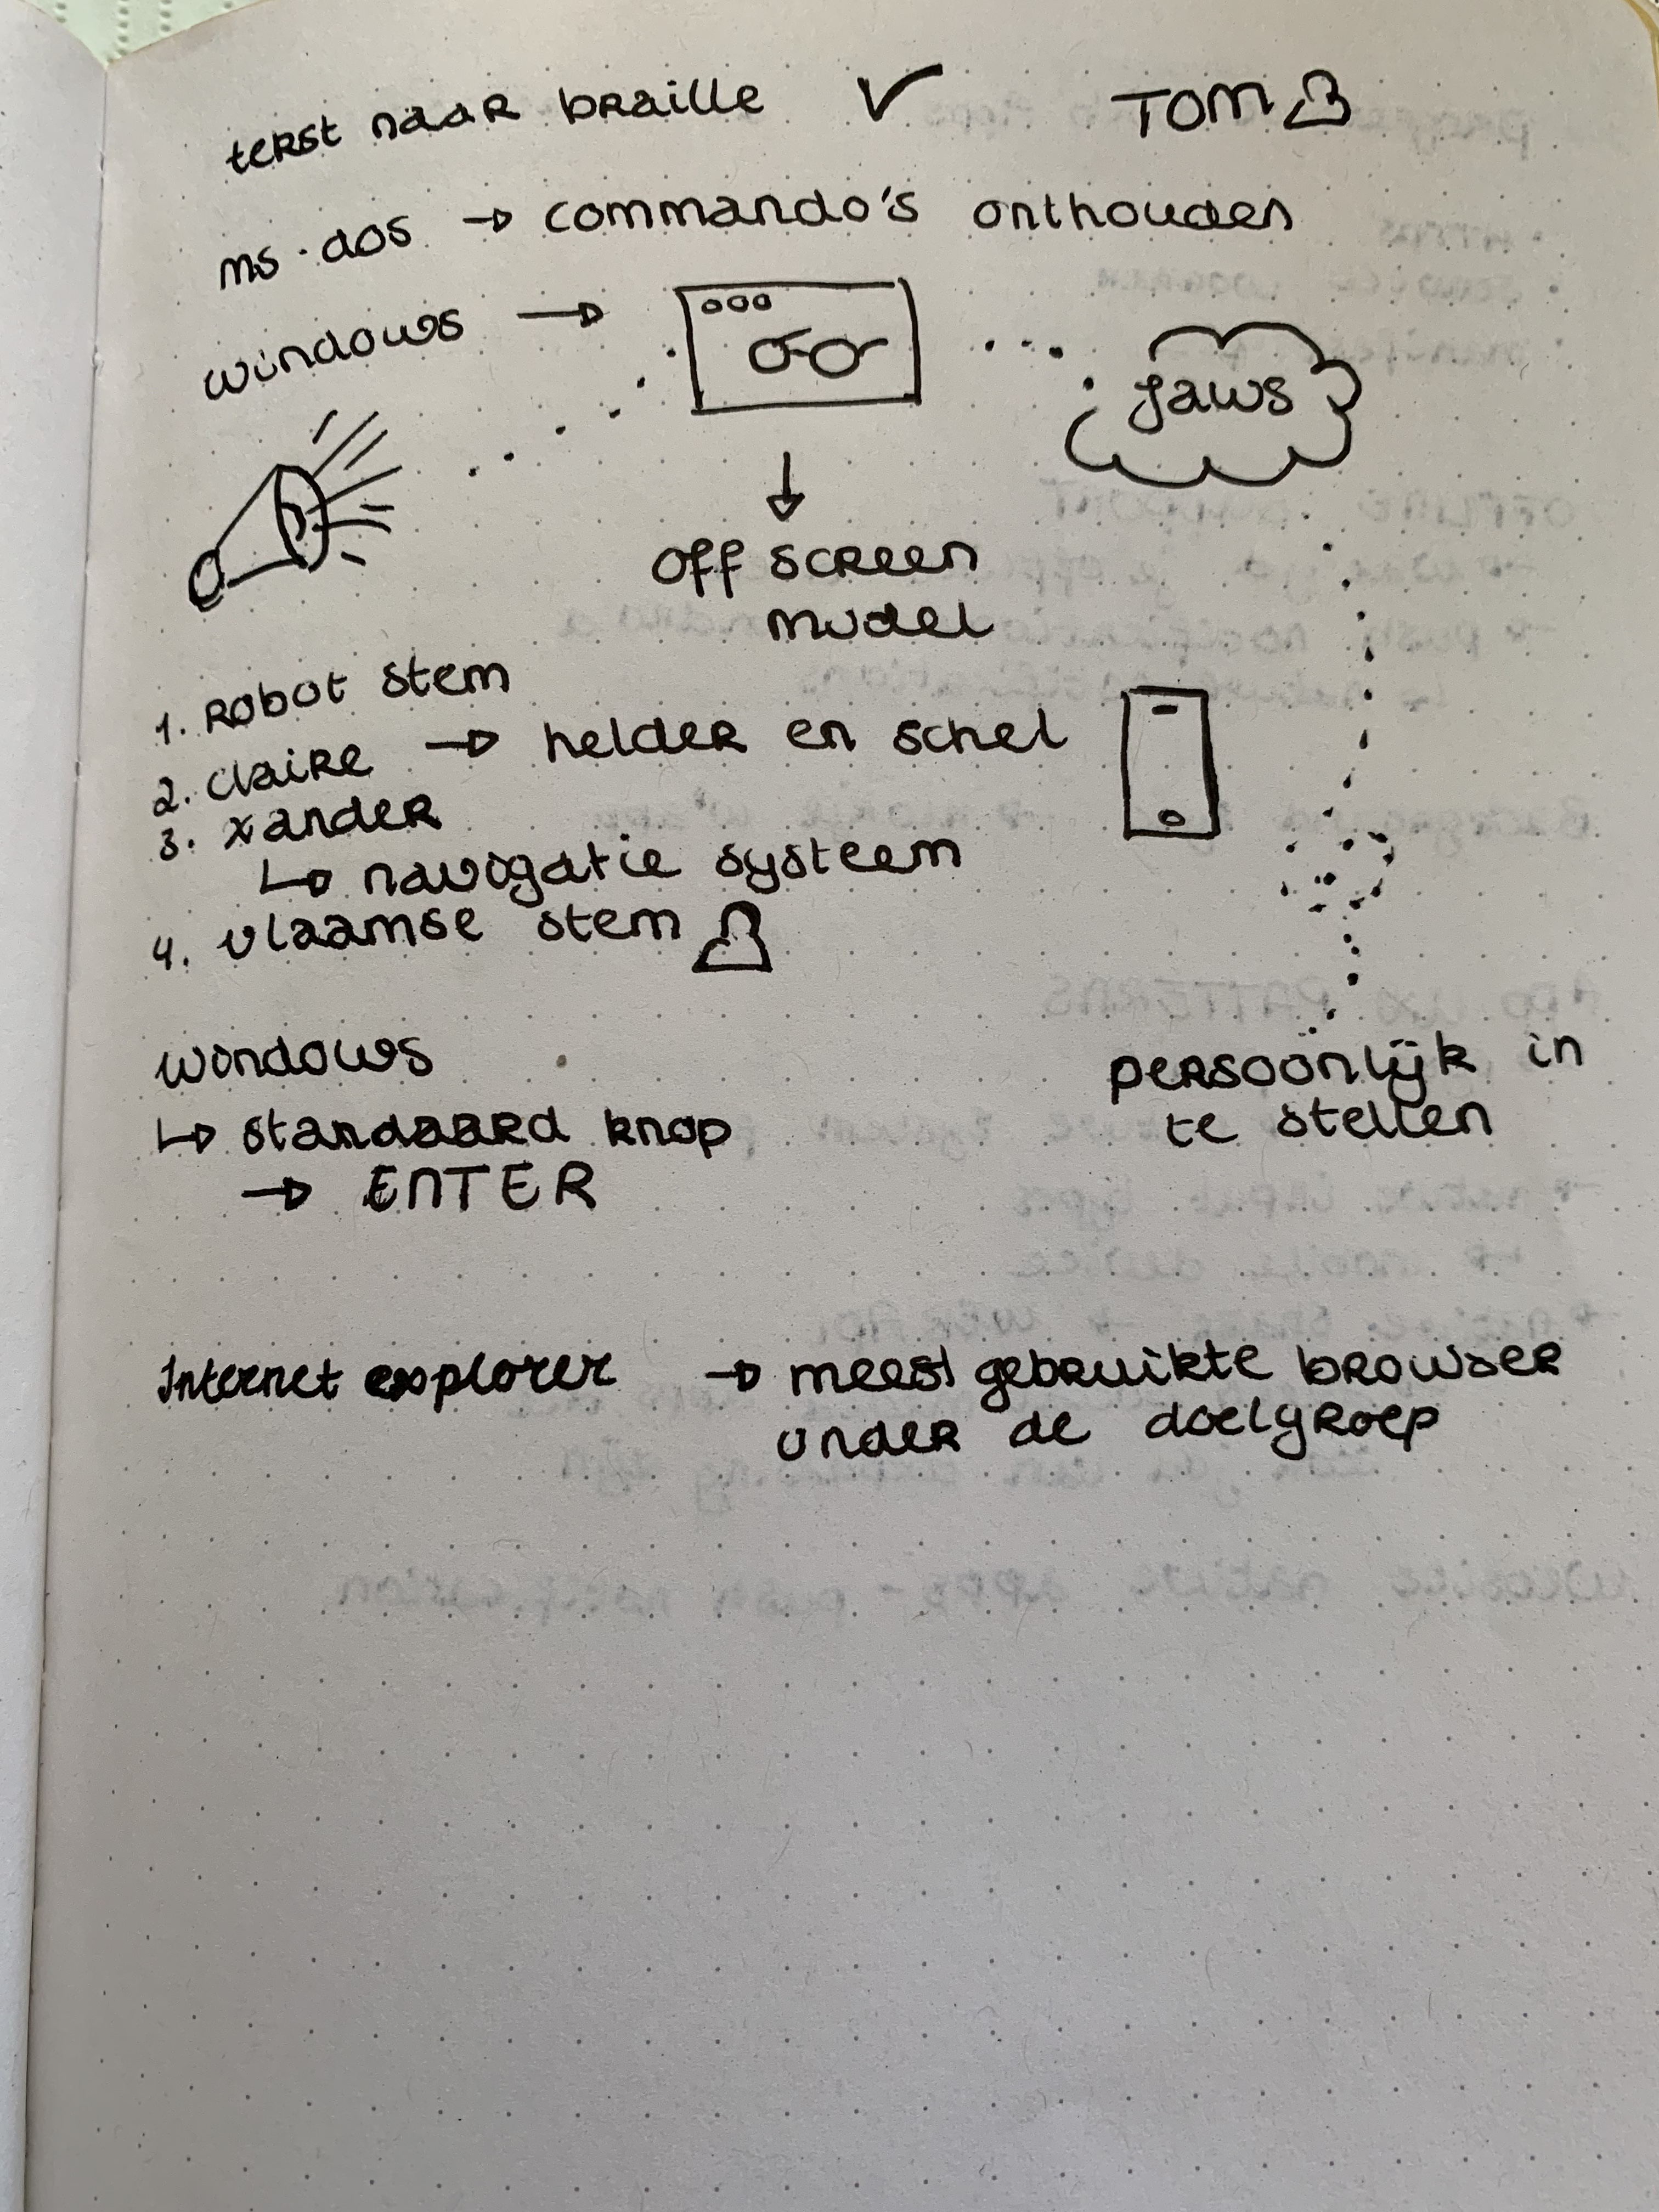 tekst naar braille ✓ TOM
ms-dos → commando's onthouden
windows →
jaws
↓
off screen
model
1. Robot stem
2. claire → helder en schel
3. xander
↳ navigatie systeem
4. vlaamse stem
windows
↳ standaard knop
→ ENTER
persoonlijk in
te stellen
Internet explorer → meest gebruikte browser
onder de doelgroep